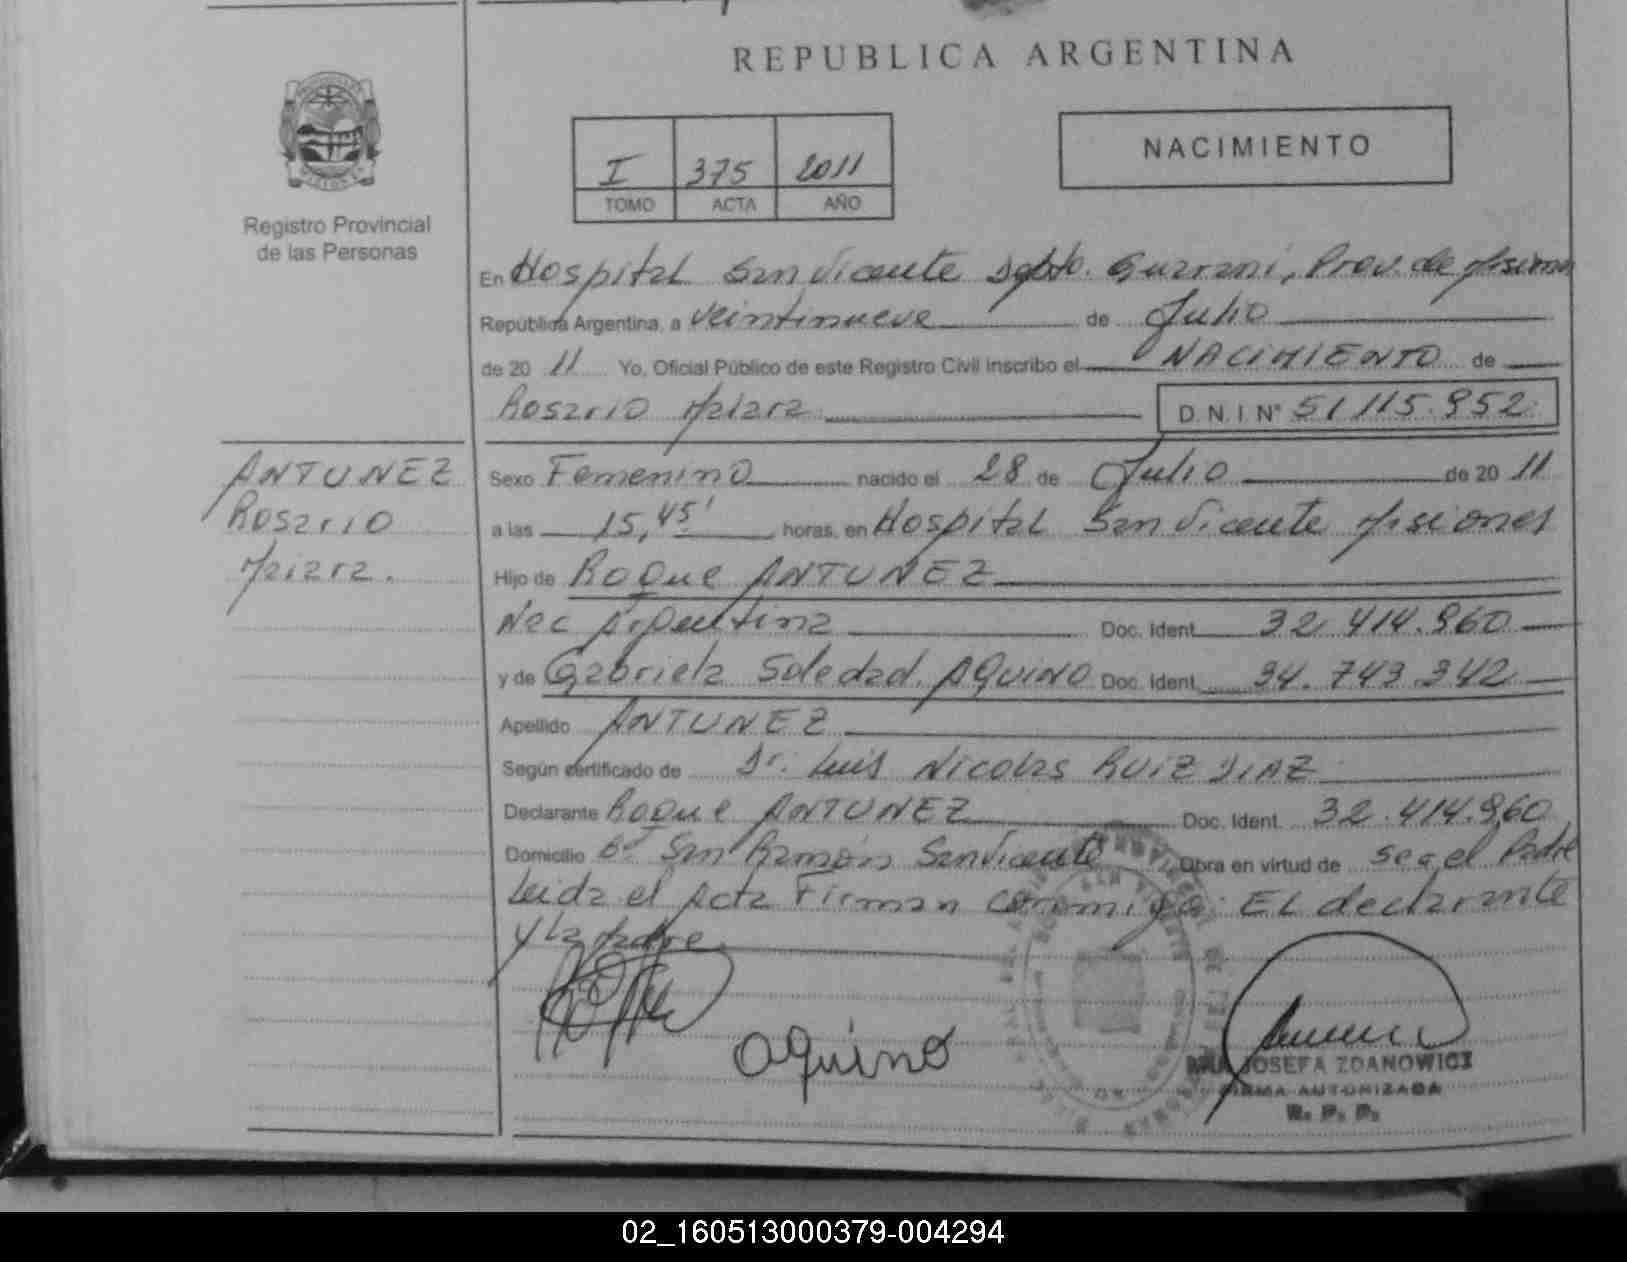 REPUBLICA ARGENTINA
Registro Provincial
de las Personas
I 375 2011
TOMO ACTA AÑO
NACIMIENTO
En Hospital San Vicente Dpto. Guarani, Prov. de Misiones
República Argentina, a veintinueve de Julio
de 20 11 Yo, Oficial Público de este Registro Civil inscribo el NACIMIENTO de
Rosario Maiara D.N.I Nº 51.115.952
ANTUNEZ
Rosario
Maiara.
Sexo Femenino nacido el 28 de Julio de 20 11
a las 15,45' horas, en Hospital San Vicente Misiones
Hijo de Roque ANTUNEZ
Nac Argentina Doc. Ident. 32.414.960
y de Gabriela Soledad AQUINO Doc. Ident. 34.743.342
Apellido ANTUNEZ
Según certificado de Dr. Luis Nicolas RUIZ DIAZ
Declarante Roque ANTUNEZ Doc. Ident. 32.414.960
Domicilio Bº San Ramón San Vicente Obra en virtud de ser el Padre
Leida el Acta Firman conmigo: EL declarante
y La Madre
Aquino
JOSEFA ZDANOWICZ
FIRMA AUTORIZADA
R. P. P.
02_160513000379-004294